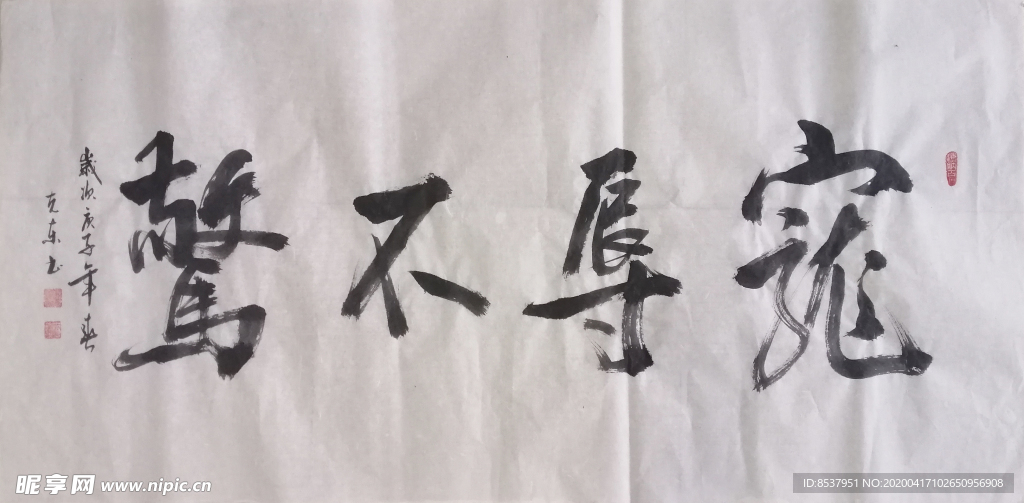 寵辱不驚
歲次庚子年春
克东书
昵享网 www.nipic.cn
ID:8537951 NO:20200417102650956908